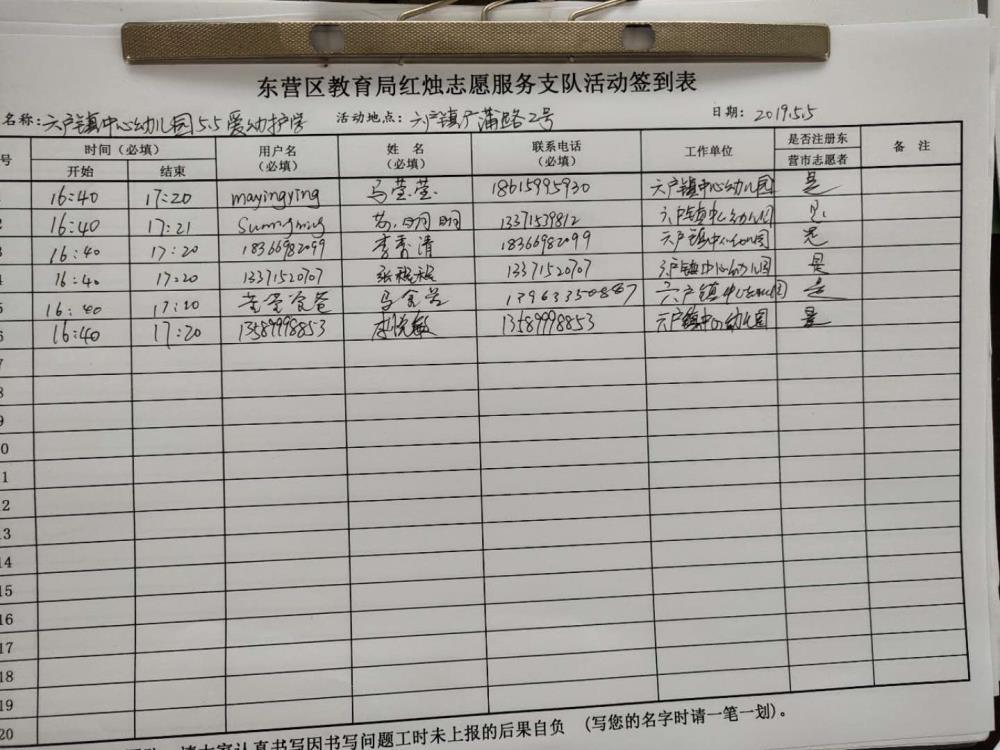 东营区教育局红烛志愿服务支队活动签到表
名称:六户镇中心幼儿园5.5爱幼护学 活动地点:六户镇广蒲路2号 日期:2019.5.5
号 时间(必填) 用户名(必填) 姓名(必填) 联系电话(必填) 工作单位 是否注册东营市志愿者 备注
开始 结束
16:40 17:20 mayingying 马莹莹 18615995930 六户镇中心幼儿园 是
16:40 17:21 明明 13371539812 六户镇中心幼儿园 是
16:40 17:20 18366982099 李秀清 18366982099 六户镇中心幼儿园 是
16:40 17:20 13371520707 张 13371520707 六户镇中心幼儿园 是
16:40 17:20 马 六户镇中心幼儿园 是
16:40 17:20 13589998853 李悦敏 13589998853 六户镇中心幼儿园 是
7
8
9
0
1
2
13
14
15
16
17
18
19
20
请大家认真书写因书写问题工时未上报的后果自负 (写您的名字时请一笔一划)。